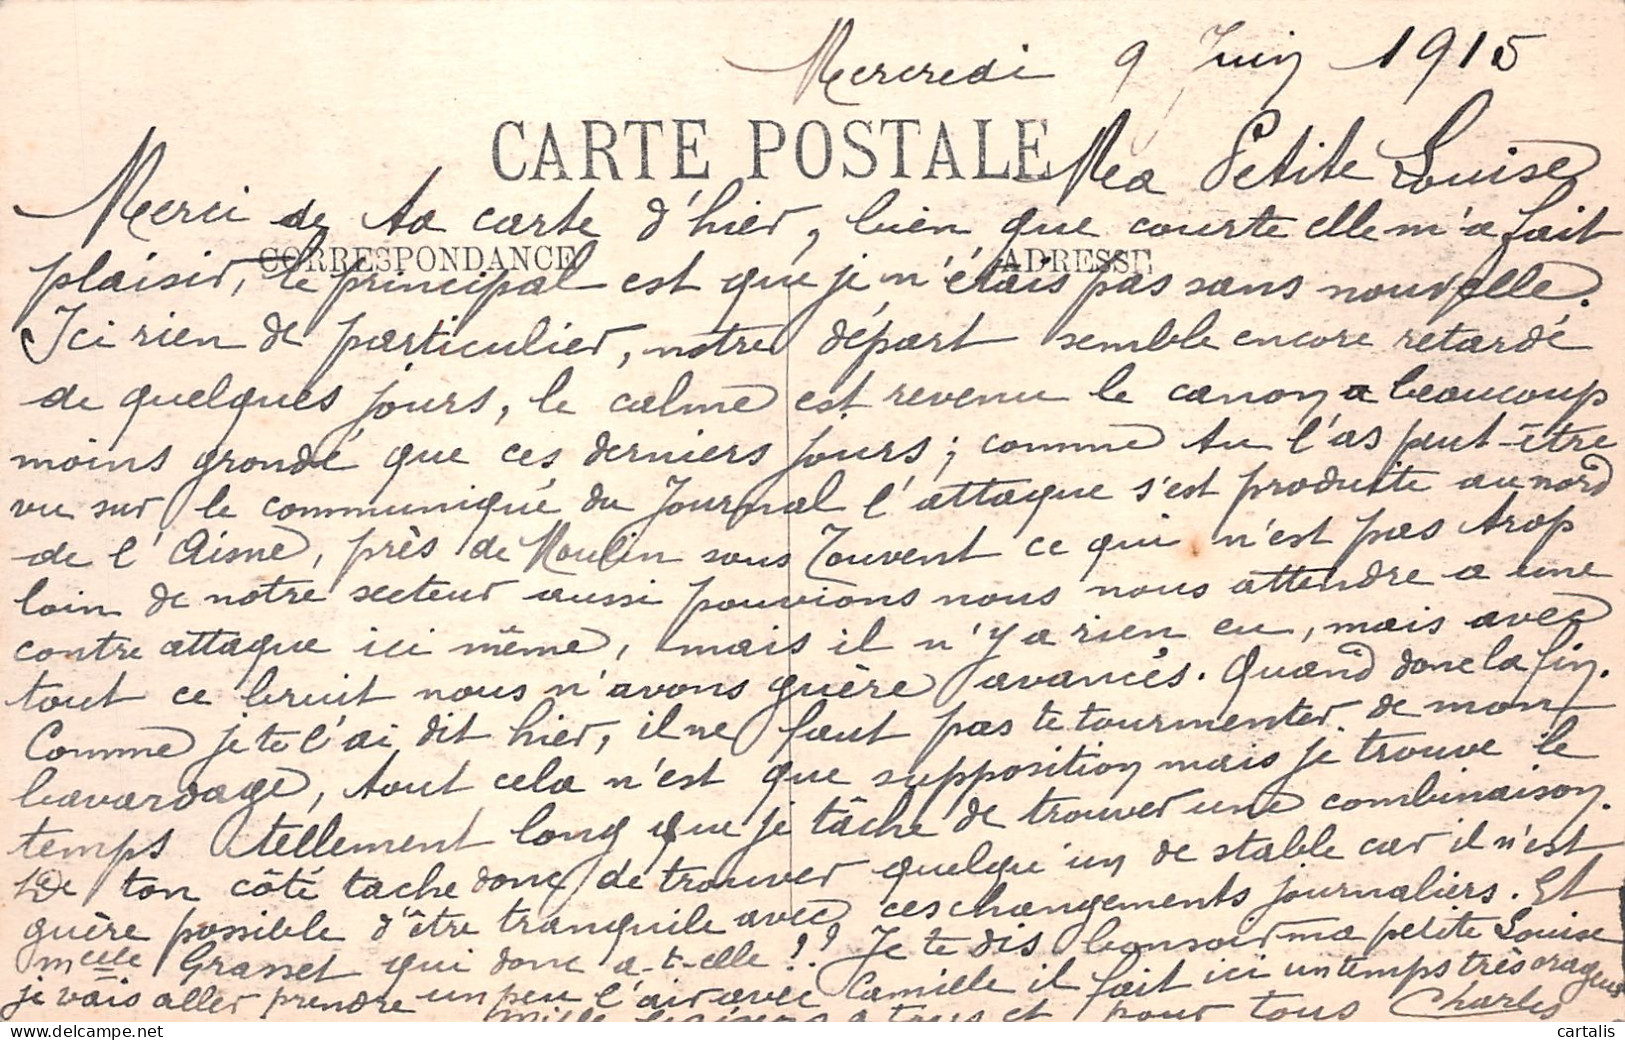 Mercredi 9 Juin 1915
CARTE POSTALE
Ma Petite Louise
Merci de ta carte d'hier, bien que courte elle m'a fait
CORRESPONDANCE
ADRESSE
plaisir, le principal est que je n'étais pas sans nouvelle.
Ici rien de particulier, notre départ semble encore retardé
de quelques jours, le calme est revenu le canon a beaucoup
moins grondé que ces derniers jours; comme tu l'as peut-être
vu sur le communiqué du Journal l'attaque s'est produite au nord
de l'Aisne, près de Moulin sous Touvent ce qui n'est pas trop
loin de notre secteur aussi pouvions nous nous attendre a une
contre attaque ici même, mais il n'y a rien eu, mais avec
tout ce bruit nous n'avons guère avancés. Quand donc la fin.
Comme je te l'ai dit hier, il ne faut pas te tourmenter de mon
bavardage, tout cela n'est que supposition mais je trouve le
temps tellement long que je tâche de trouver une combinaison.
De ton côté tache donc de trouver quelqu'un de stable car il n'est
guère possible d'être tranquile avec ces changements journaliers. Et
Melle Grasset qui donc a-t-elle!? Je te dis bonsoir ma petite Louise
je vais aller prendre un peu l'air avec Camille il fait ici un temps très orageux
Mille baisers a tous et pour tous Charles
cartalis